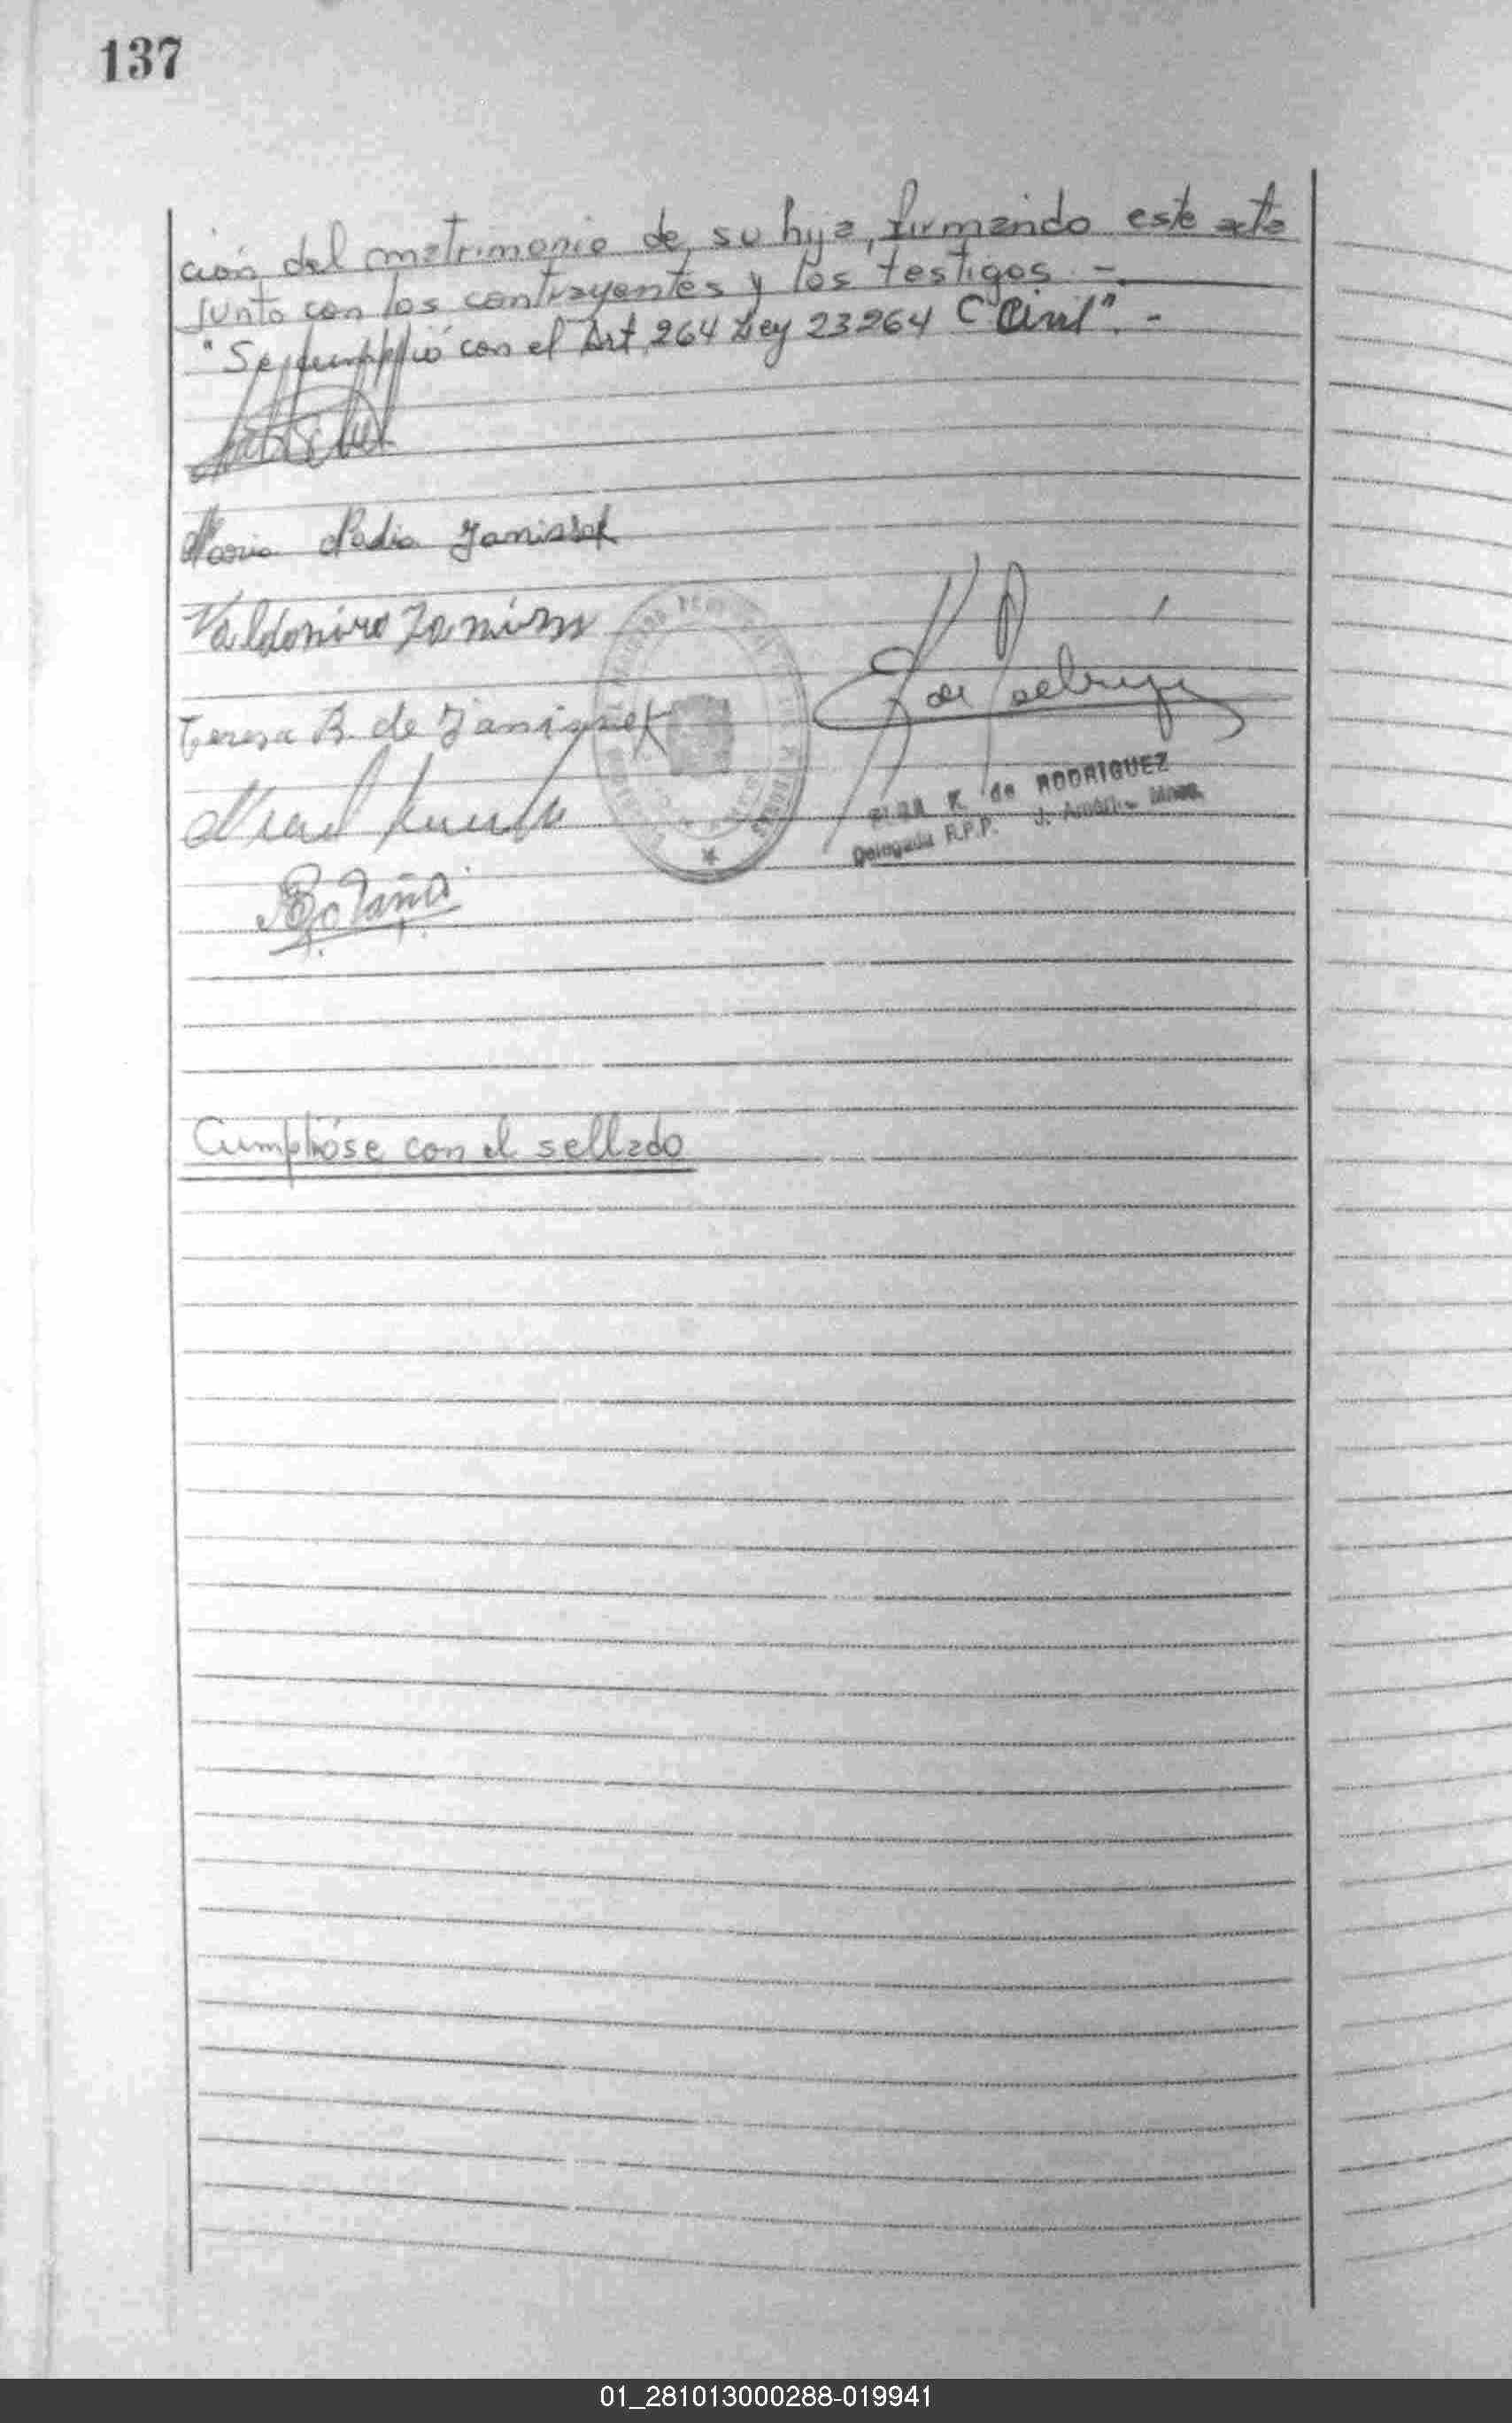 137
ción del matrimonio de su hija, firmando este acta
junto con los contrayentes y los testigos. -
"Se cumplió con el Art. 264 Ley 23264 C Civil". -
Maria Nadia Janissek
Valdomiro Janissek
Teresa B. de Janissek
de Rodrigu
ELBA K. de RODRIGUEZ
Delegada R.P.P. J. América Mnes.
Cumplióse con el sellado
01_281013000288-019941